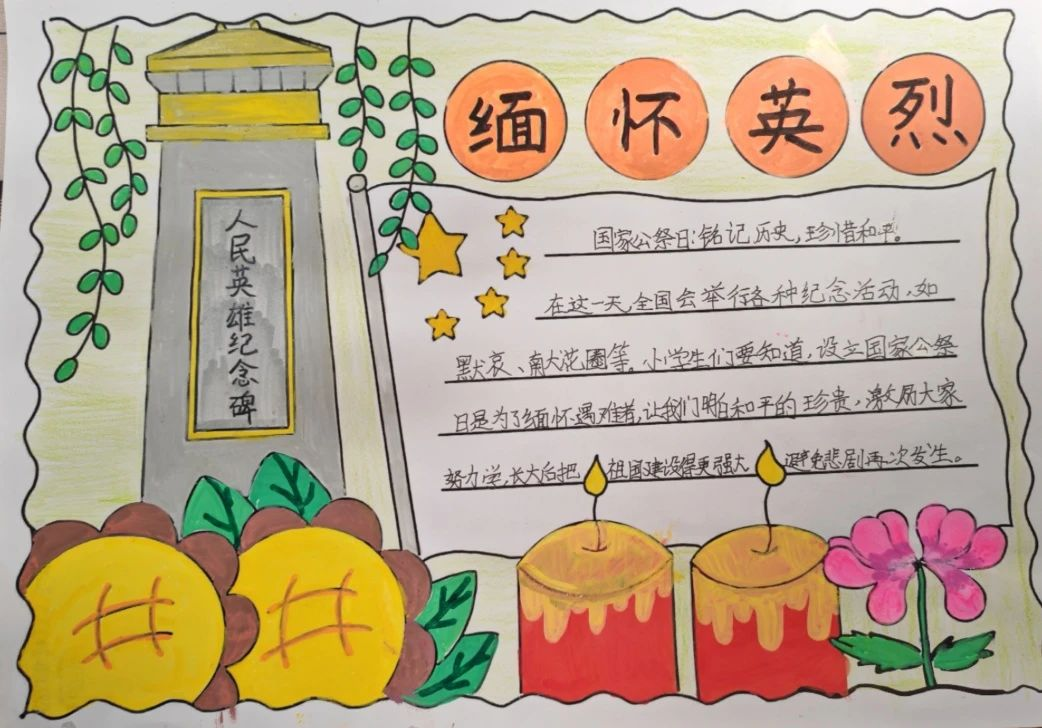 缅怀英烈
人民英雄纪念碑
国家公祭日:铭记历史,珍惜和平。
在这一天,全国会举行各种纪念活动,如
默哀、南大花圈等。小学生们要知道,设立国家公祭
日是为了缅怀遇难者,让我们明白和平的珍贵,激励大家
努力学,长大后把祖国建设得更强大避免悲剧再次发生。